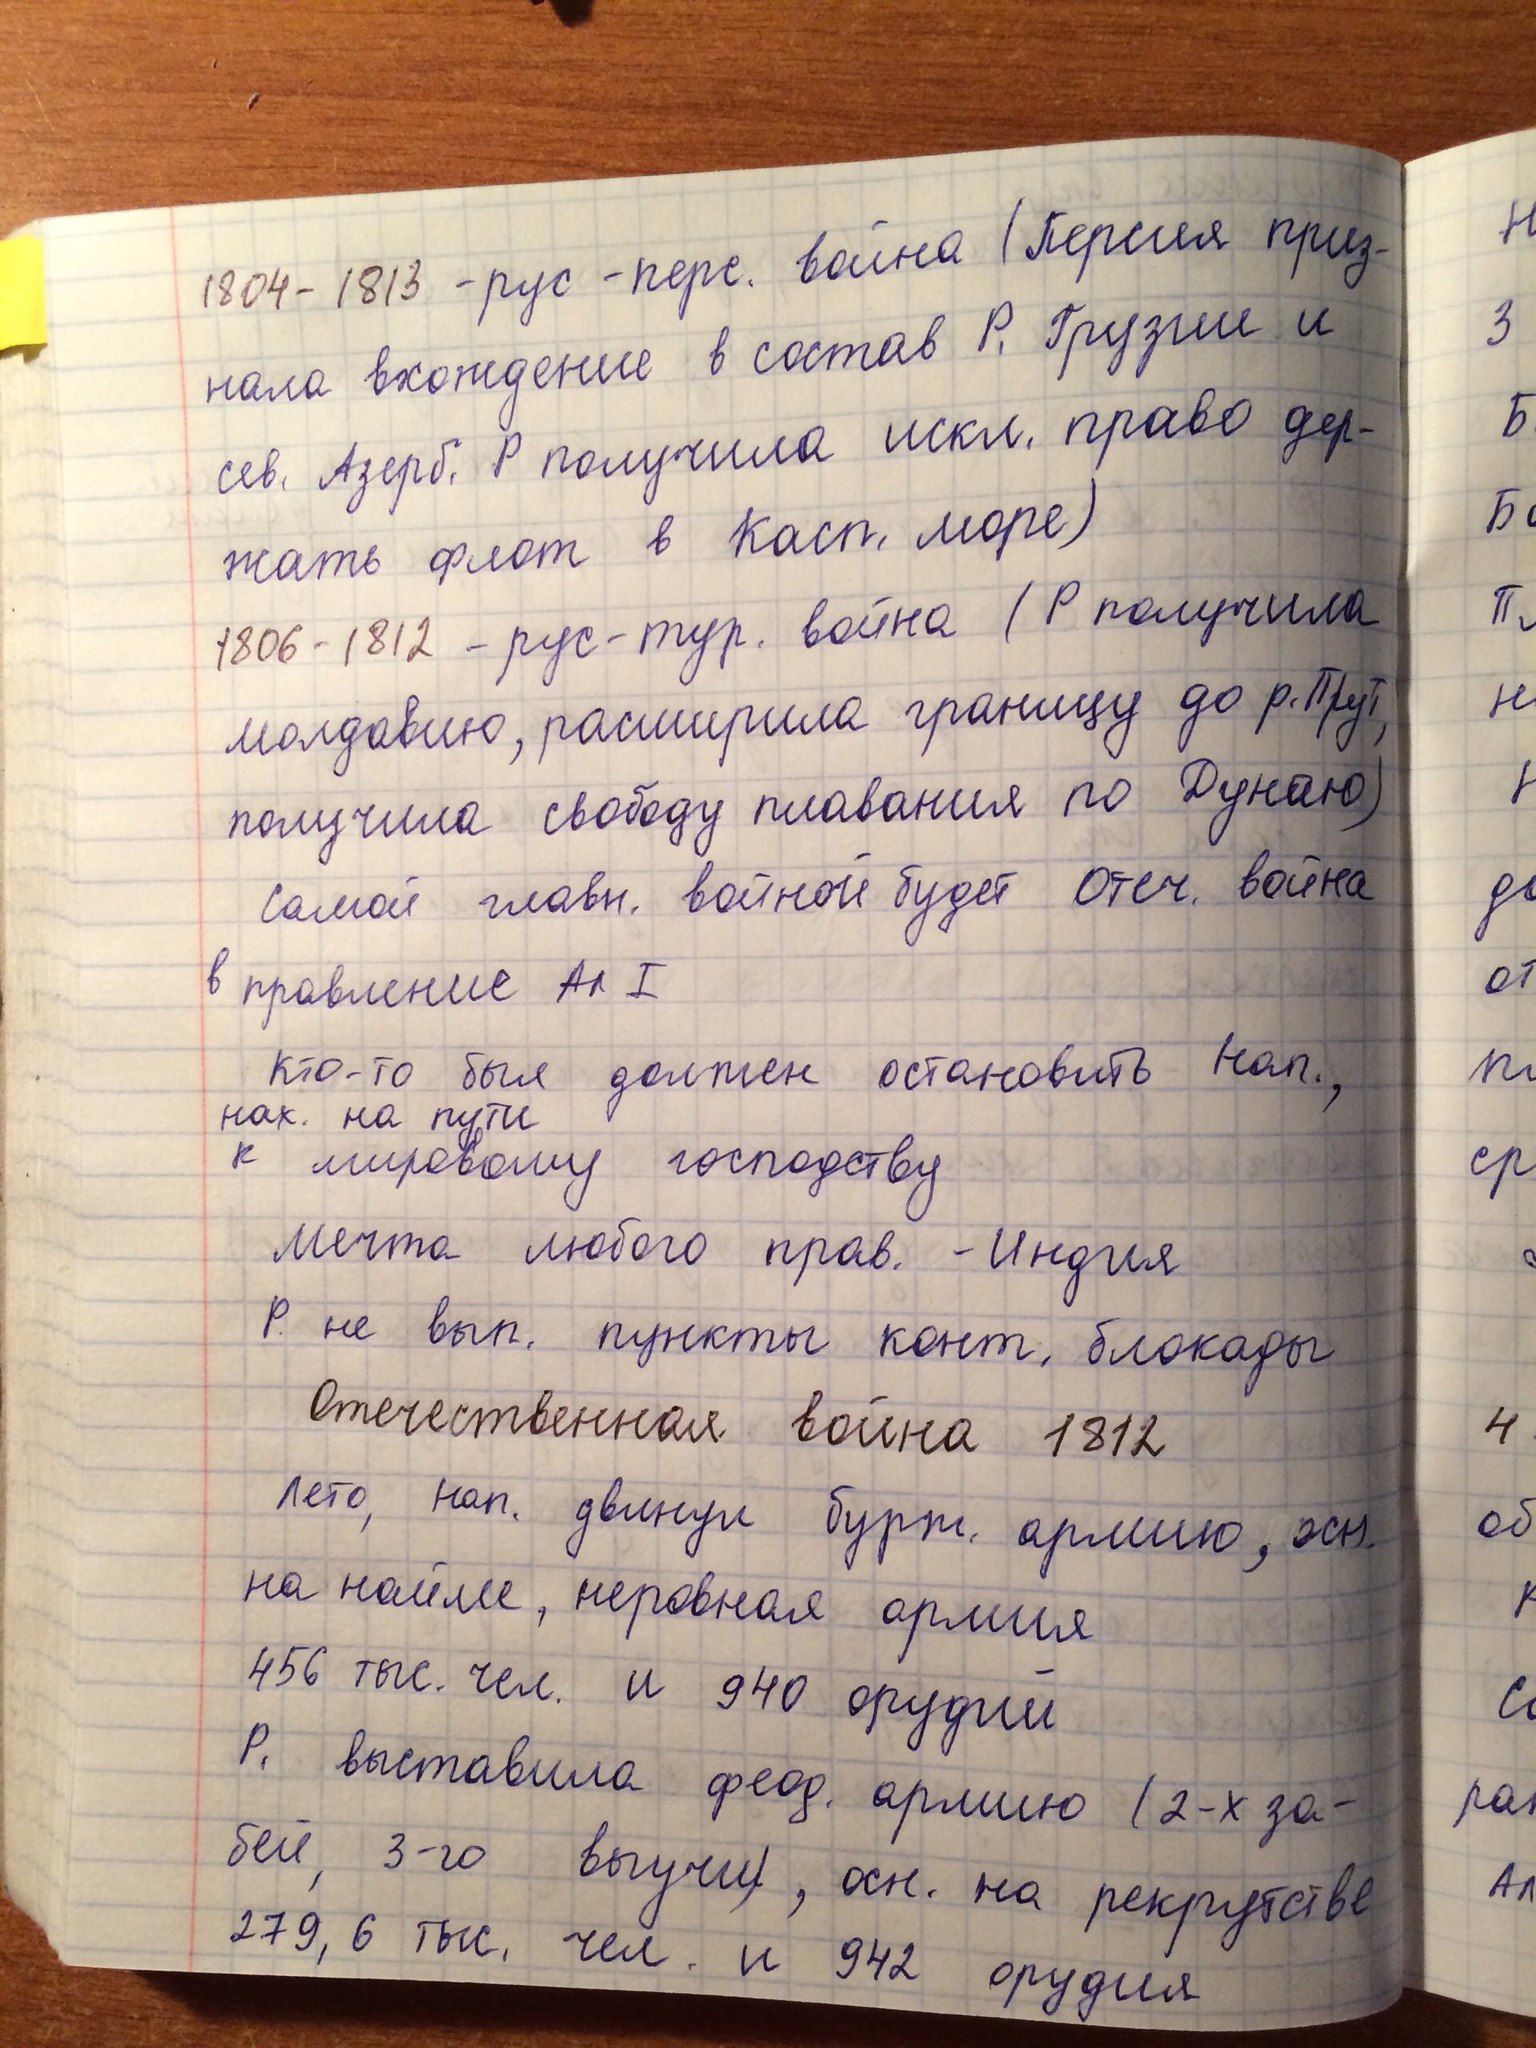 1804-1813 - рус - перс. война (Персия приз-
нала вхождение в состав Р. Грузии и
сев. Азерб. Р получила искл. право дер-
жать флот в Касп. море)
1806-1812 - рус-тур. война (Р получила
Молдавию, расширила границу до р. Прут,
получила свободу плавания по Дунаю)
Самой главн. войной будет Отеч. война
в правление Ал I
Кто-то был должен остановить Нап.,
нах. на пути
к мировому господству
Мечта любого прав. - Индия
Р. не вып. пункты конт. блокады
Отечественная война 1812
Лето, Нап. двинул бурж. армию, осн.
на найме, неровная армия
456 тыс. чел. и 940 орудий
Р. выставила феод. армию (2-х за-
бей, 3-го выучи), осн. на рекрутстве
279,6 тыс. чел. и 942 орудия
Н
З
Б
Бо
Пл
н
Н
до
от
пл
ср
4
об
К
Со
ран
Ал